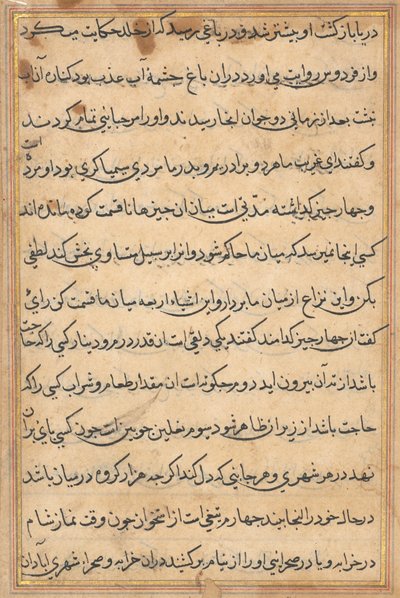 دریا باز کشت او پیشتر شد و در باغی رسید که از خلد حکایت می کرد
و از فردوس روایت می آورد در ان باغ چشمهٔ آب عذب بود کناره آن آب
بنشست بعد از زمانی دو جوان انجا رسیدند و او را مرحبایی تمام کردند
و کفتند ای غریب ما هر دو برادریم و پدر ما مردی سیمیاکری بود او مرده است
و چهار چیز کذاشته مدتی است میان ان چیزها نا قسمت کرده مانده اند
کسی اینجا نمیرسد که میان ما حاکم شود و انرا بر سبیل متساوی بخش کند لطفی
بکن و این نزاع از میان ما بردار و این اشیاء اربعه میان ما قسمت کن رای
کفت ان چهار چیز کدامند کفتند یکی دلقی است ان قدر زر و دینار کسی را که حاجت
باشد از ته آن بیرون اید دوم است ان مقدار طعام و شراب کسی را که
حاجت باشد از زیر ان ظاهر شود سوم نعلین چوبین است چون کسی پای بران
نهد در هر شهری و هر جایی که دل کند اکر چه هزار کروه در میان باشد
در حال خود را انجا بیند چهارم تیغی است از استخوان چون وقت نماز شام
در خرابه و یا در صحرایی او را از نیام برکشند در ان خرابه و صحرا شهری آبادان